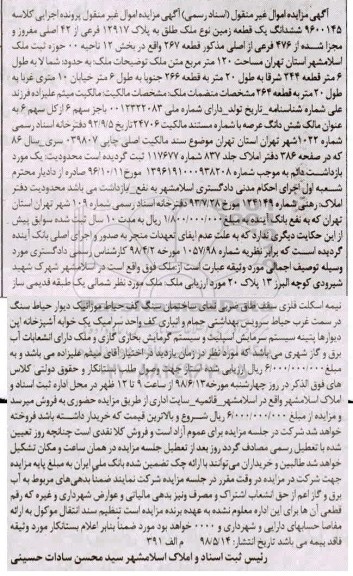 آگهی مزایده اموال غیر منقول (اسناد رسمی) آگهی مزایده اموال غیر منقول پرونده اجرایی کلاسه
۹۶۰۰۱۴۵ ششدانگ یک قطعه زمین نوع ملک طلق به پلاک ۱۲۹۱۷ فرعی از ۴۲ اصلی مفروز و
مجزا شده از ۴۷۶ فرعی از اصلی مذکور قطعه ۲۶۷ واقع در بخش ۱۲ ناحیه ۰۰ حوزه ثبت ملک
اسلامشهر استان تهران مساحت ۱۲۰ متر مربع متن ملک توضیحات ملک: به حدود: شمالا به طول
۶ متر قطعه ۲۴۴ شرقا به طول ۲۰ متر به قطعه ۲۶۶ جنوبا به طول ۶ متر خیابان ۱۰ متری غربا به
طول ۲۰ متر به قطعه ۲۶۴ مشخصات منضمات ملک: مشخصات مالکیت: مالکیت میثم علیزاده فرزند
علی شماره شناسنامه_تاریخ تولد_دارای شماره ملی ۰۰۱۲۳۲۲۰۸۳ باجز سهم ۶ از کل سهم ۶ به
عنوان مالک شش دانگ عرصه با شماره مستند مالکیت ۲۴۷۰۶تاریخ ۹۳/۹/۵ دفترخانه اسناد رسمی
شماره ۱۰۲۲شهر تهران استان تهران موضوع سند مالکیت اصلی چاپی ۰۳۹۸۰۷ سری_سال ۸۶
که در صفحه ۲۸۶ دفتر املاک جلد ۸۳۷ شماره ۱۱۷۶۷۷ ثبت گردیده است محدودیت: یک مورد
بازداشت دائم به موجب شماره ۱۳۹۶۱۹۱۰۰۰۹۳۸۲۰۸ مورخ ۹۶/۱۰/۱۱ صادره از دادیار محترم
شعبه اول اجرای احکام مدنی دادگستری اسلامشهر به نفع_بازداشت می باشد محدودیت دفتر
املاک: رهنی شماره ۱۳۴۱۴۹ مورخ ۹۳/۷/۲۸ دفترخانه اسناد رسمی شماره ۱۰۹ شهر تهران استان
تهران که به نفع بانک آینده به مبلغ ۱/۸۰۰/۰۰۰/۰۰۰ ریال به مدت ۱۰ سال ثبت شده سوابق بیش
از این حکایت دیگری ندارد که به علت عدم ایفای تعهدات منجر به صدور و اجرای اصلی بانک آینده
گردیده است که برابر نظریه شماره ۱۰۵۷/۹۸ مورخه ۹۸/۴/۲ کارشناس رسمی دادگستری مورد
وسیله توصیف اجمالی مورد وثیقه عبارت است از ملک فوق واقع است در اسلامشهر شهرک شهید
شیرودی کوچه البرز ۱۳ پلاک ۲۰ مورد ارزیابی ملک، ملک مورد نظر شمالی یک طبقه قدیمی ساز
نیمه اسکلت فلزی سقف طاق ضربی نمای ساختمان سنگ کف حیاط موزائیک دیوار حیاط سنگ
در سمت غرب حیاط سرویس بهداشتی حمام و انباری کف واحد سرامیک یک خوابه آشپزخانه اپن
دیوارها پتینه سیستم سرمایش اسپلیت و سیستم گرمایش بخاری گازی و ملک دارای انشعابات آب
برق و گاز شهری می باشد که مورد نظر در زمان بازدید در اختیار آقای میثم علیزاده می باشد و به
مبلغ ۶/۰۰۰/۰۰۰/۰۰۰ ریال ارزیابی شده است جهت وصول طلب بستانکار و حقوق دولتی کلاس
های فوق الذکر در روز چهارشنبه مورخه ۹۸/۶/۱۳ از ساعت ۹ تا ۱۲ ظهر در محل اداره ثبت اسناد و
املاک اسلامشهر واقع در اسلامشهر_قائمیه_سایت اداری از طریق مزایده حضوری به فروش میرسد
و مزایده از مبلغ ۶/۰۰۰/۰۰۰/۰۰۰ ریال شروع و بالاترین قیمت که خریدار داشته باشد فروخته
خواهد شد شرکت در جلسه مزایده برای عموم آزاد است و فروش کلا نقدی است چنانچه روز تعیین
شده با تعطیل رسمی مصادف گردد روز بعد از تعطیل جلسه مزایده در همان ساعت و مکان تشکیل
خواهد شد طالبین و خریداران می توانند با ارائه چک تضمین شده بانک ملی ایران به مبلغ پایه مزایده
جهت شرکت در مزایده در وقت مقرر در جلسه مزایده شرکت نمایند ضمنا بدهی های مربوط به آب
برق و گاز اعم از حق انشعاب اشتراک و مصرف ونیز بدهی مالیاتی و عوارض شهرداری و غیره که رقم
قطعی آن ها برای این اداره معلوم نشده به عهده برنده مزایده است تنظیم سند انتقال موکول به ارائه
مفاصا حسابهای دارایی و شهرداری و ۰۰۰۰ خواهد بود ضمنا بنابر اعلام بستانکار مورد وثیقه
فاقد بیمه می باشد تاریخ انتشار: ۹۸/۵/۱۴ م الف ۳۹۱
رئیس ثبت اسناد و املاک اسلامشهر سید محسن سادات حسینی